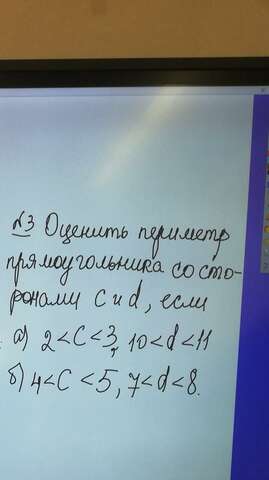 №3 Оценить периметр
прямоугольника со сто-
ронами c и d, если
а) 2<c<3, 10<d<11
б) 4<c<5, 7<d<8.